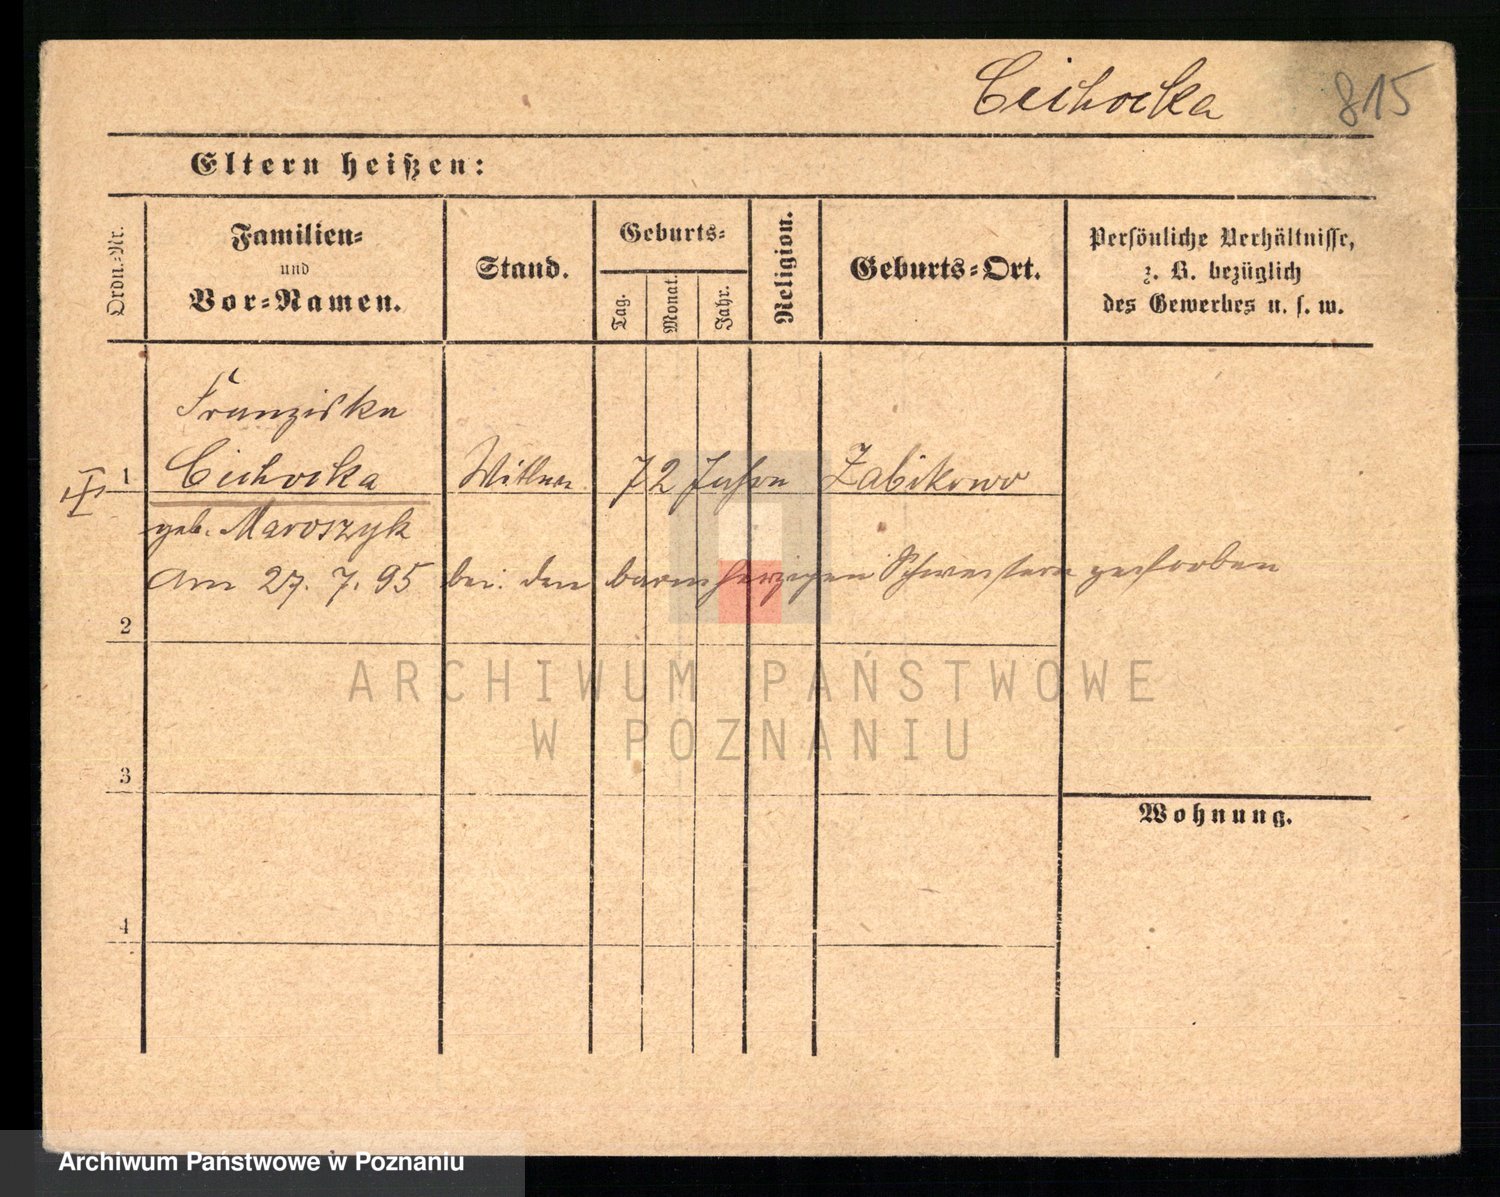 Cichocka 815
Eltern heißen:
Ordn.-Nr.
Familien-
und
Vor-Namen.
Stand.
Geburts-
Tag.
Monat.
Jahr.
Religion.
Geburts-Ort.
Persönliche Verhältnisse,
z. B. bezüglich
des Gewerbes u. s. w.
Franziska
1 Cichocka Wittwe 72 Jahre Zabikowo
geb. Maroszyk
am 27. 7. 95 bei den barmherzigen Schwestern gestorben
2
ARCHIWUM PAŃSTWOWE
W POZNANIU
3
Wohnung.
4
Archiwum Państwowe w Poznaniu